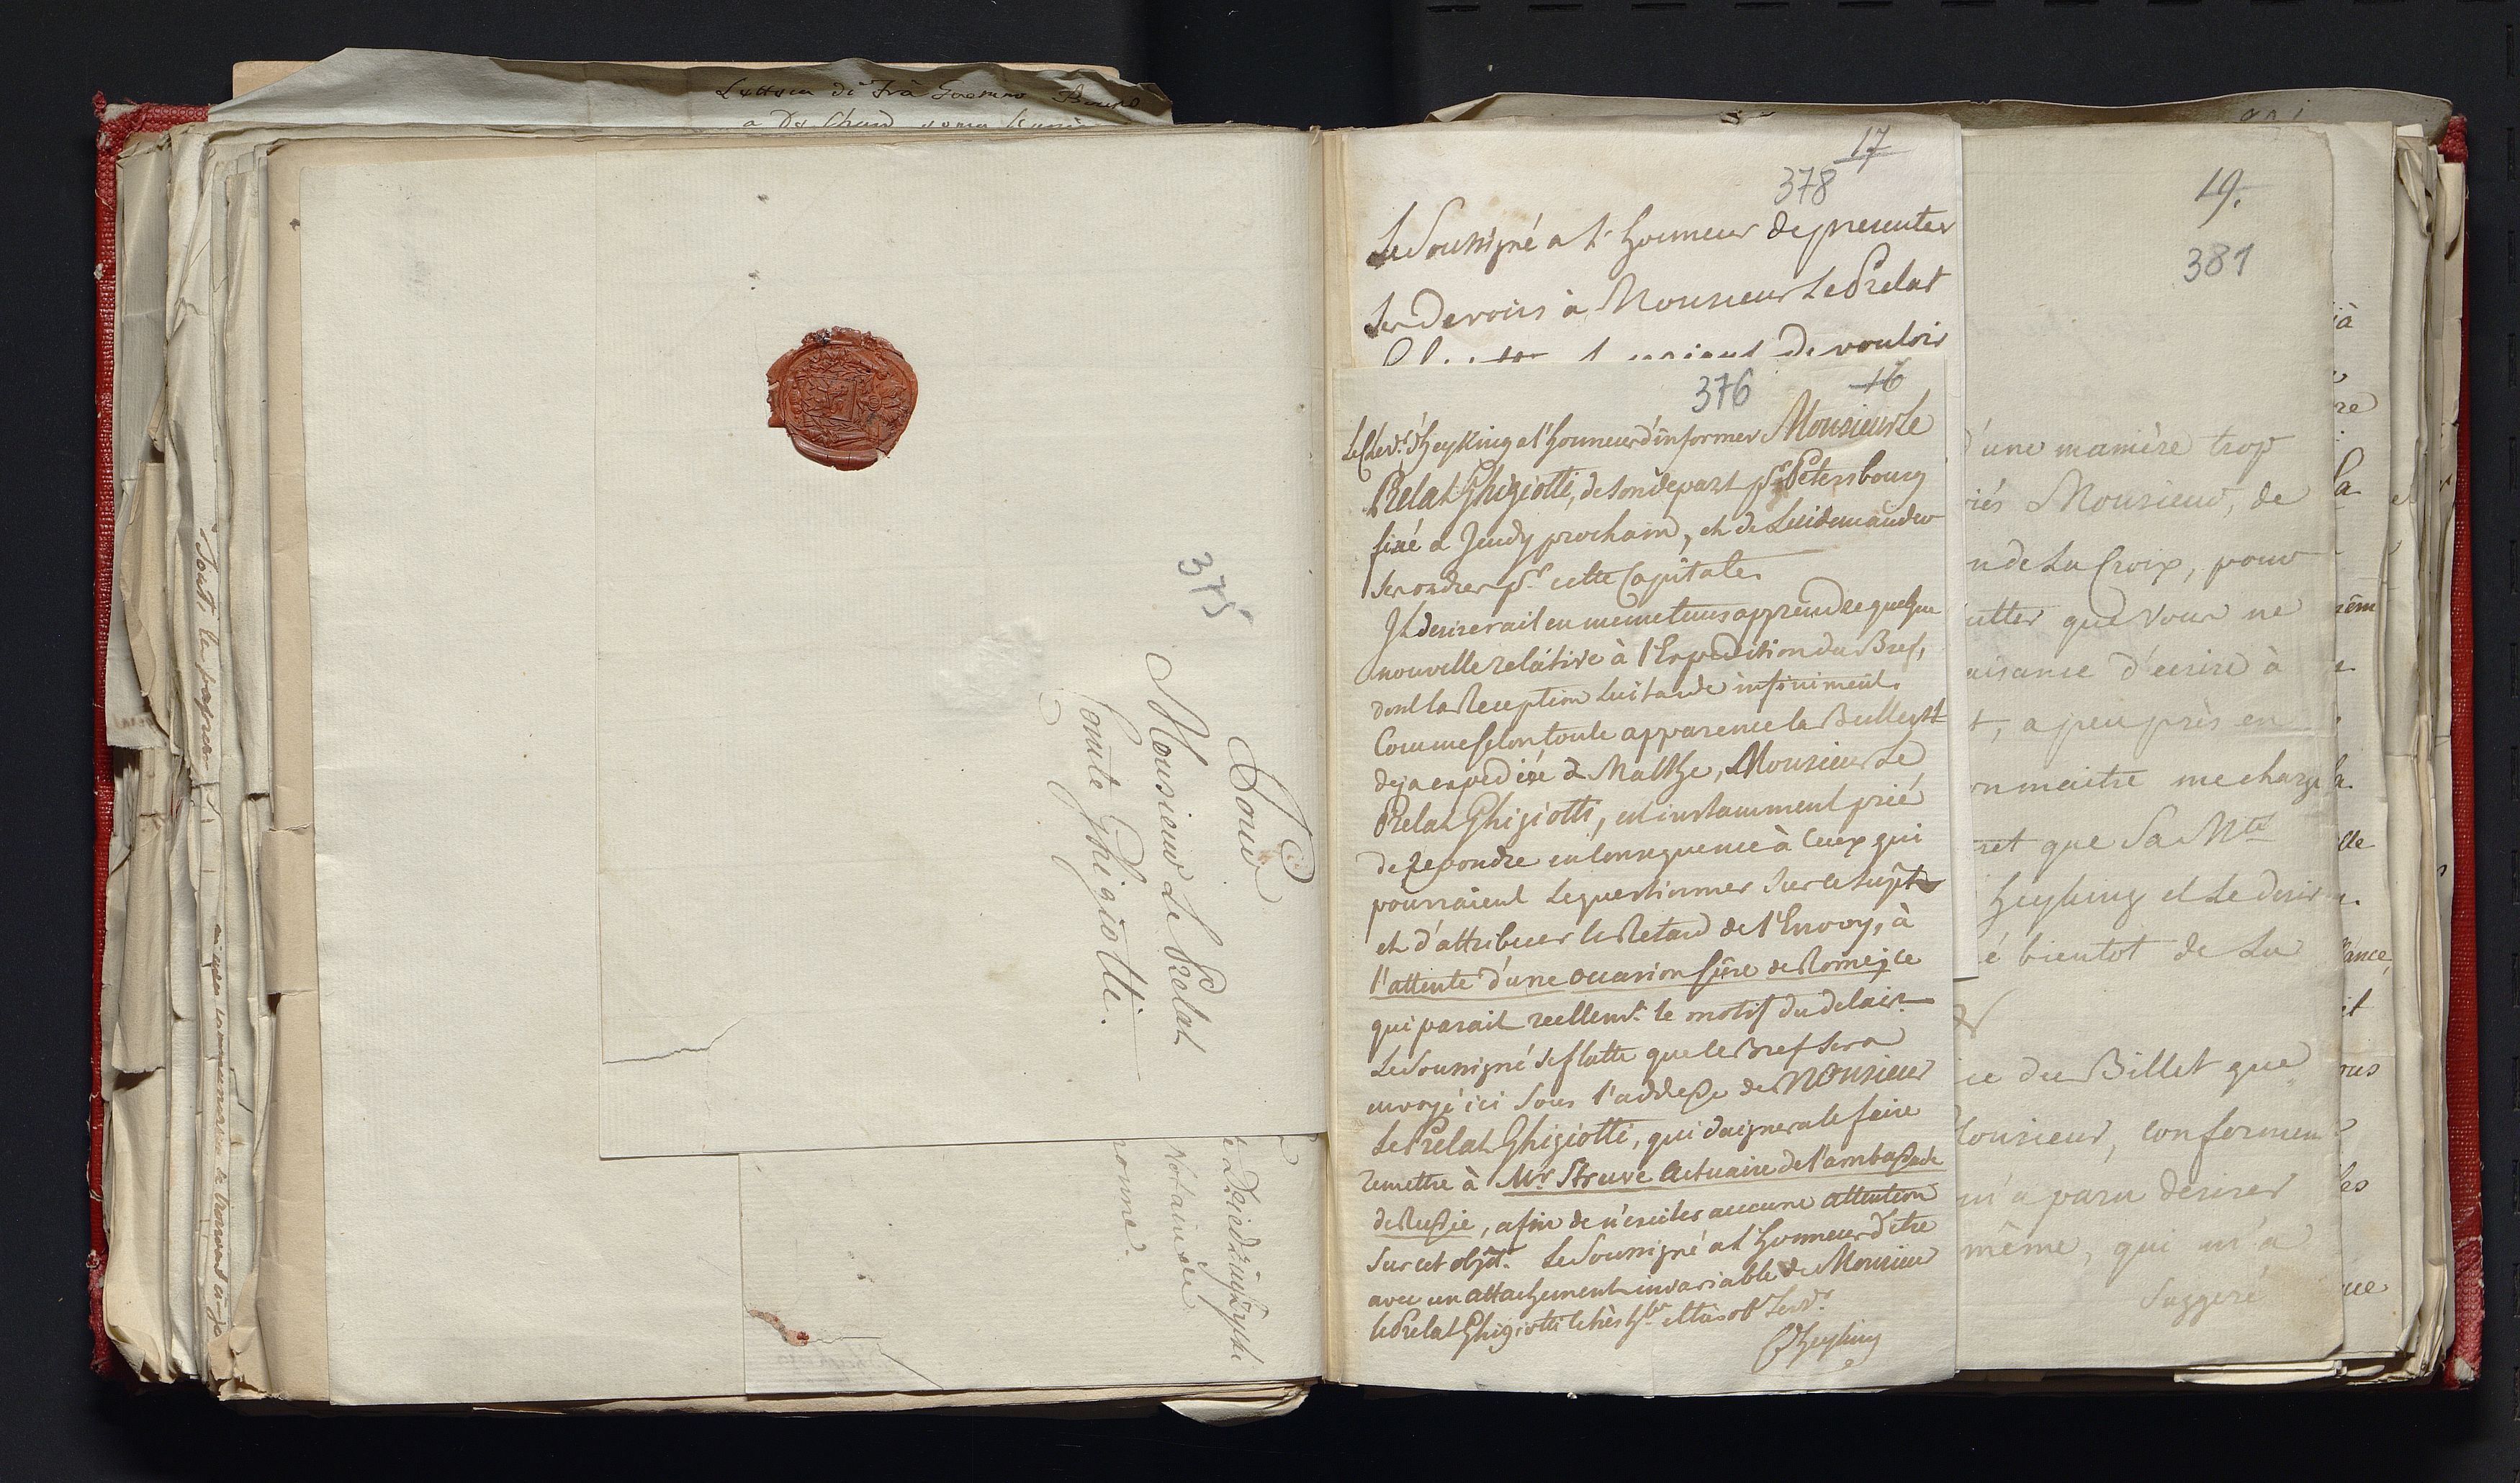 Lettera di Frà
375
Pour
Monsieur Le Prelat
Comte Ghigiotti.
Notaire de
ronne.
17
378
Le Soussigné a L'honneur de presenter
Ses Devoirs à Monsieur Le Prelat
de vouloir
376
16
Le Chev.r d'Heyking a l'honneur d'informer Monsieur Le
Prelat Ghigiotti, de son depart p.r Petersbourg
fixé a Jeudy prochain, et de Lui demander
Ses ordres p.r cette Capitale.
Il desirerait en meme tems apprendre quelque
nouvelle relative à l'Expedition du Bref,
dont la Reception lui tarde infiniment.
Comme selon toute apparence la Bulle est
deja expediée à Malthe, Monsieur Le
Prelat Ghigiotti, est instamment prié
de repondre en Consequence à Ceux qui
pourraient Le questionner Sur ce sujet
et d'attribuer le Retard de l'Envoy, à
l'attente d'une occasion sûre de Rome; ce
qui parait reellemt. le motif du delais.
Le Soussigné se flatte que le Bref sera
envoyé ici Sous l'addesse de Monsieur
Le Prelat Ghigiotti, qui daignera le faire
remettre à Mr. Struve Actuaire de l'ambassade
de Russie, afin de n'exciter aucune attention
Sur cet objet. Le Soussigné a l'honneur d'etre
avec un attachement invariable de Monsieur
le Prelat Ghigiotti le très hble et très obt Servr.
Heyking
19.
381
d'une manière trop
riés Monsieur, de
n de La Croix, pour
utter que Vous ne
aisance d'ecrire à
t, a peu près en
on maitre me charge
ret que Sa Mté
Heyking et Le desir
é bientot de La
ie du Billet que
Monsieur, conformem
m'a paru desirer
même, qui m'a
Suggeré